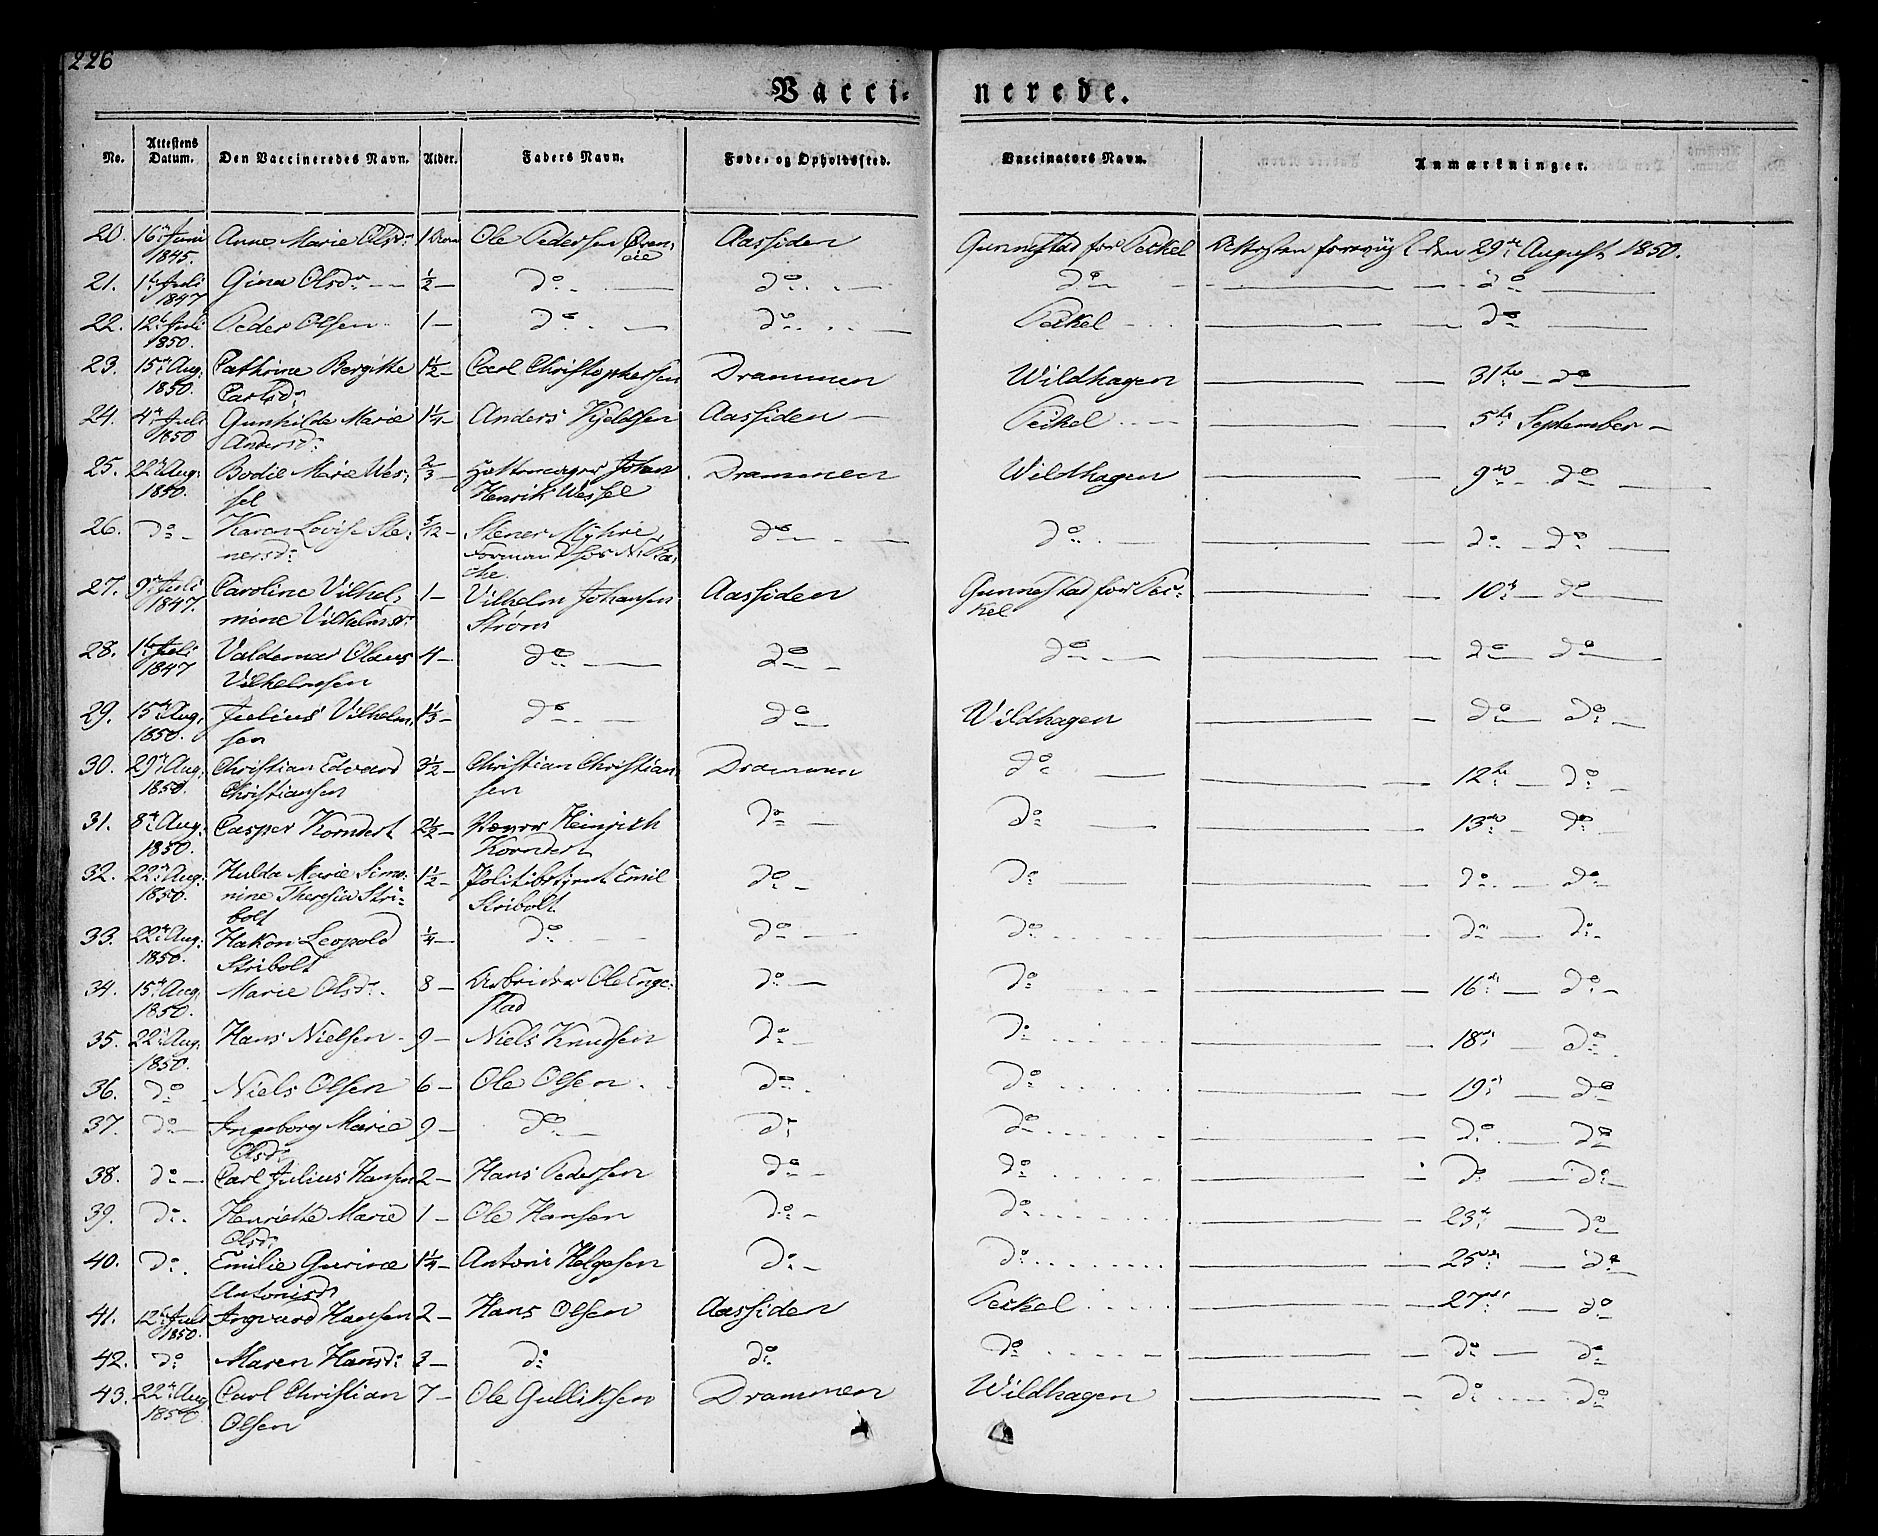 226
Vacci- nerede.
No. Attestens Datum. Den Vaccineredes Navn. Alder. Faders Navn. Føde- og Opholdssted. Vaccinators Navn. Anmærkninger.
20. 16de Juni 1845. Anne Marie Olsd: 1 Ole Pedersen Aassiden Gunnestad for Peckel Attesten foreviist den 29de August 1850.
21. 1ste Juli 1847 Gina Olsd: ½ – do do do – do
22. 12te Juli 1850. Peder Olsen 1 – do do Peckel – do
23. 15de Aug: 1850. Cathrine Bergitte Carlsd: 1½ – Carl Christophersen Drammen Wildhagen – 31te – do
24. 4de Juli 1850 Gunhilde Marie Andersd: 1¼ – Anders Kjeldsen Aassiden – Peckel – 5te September –
25. 22de Aug: 1850. Bodil Marie Wessel ⅔ – Hattemager Johan Henrik Wessel Drammen Wildhagen – 9de – do
26. do – Karen Lovise Stenersd: 5/12 – Stener Myhre, Formand hos N. Bache. do do – do – do
27. 9de Juli 1847. Caroline Vilhelmine Vilhelmsd: 1 – Vilhelm Johansen Strøm Aassiden Gunnestad for Peckel – 10de – do
28. 1ste Juli 1847 Valdemar Olaus Vilhelmsen 4 – do do do – do do
29. 15de Aug: 1850. Julius Vilhelmsen 1⅓ – do do Wildhagen – do – do
30. 29de Aug: 1850. Christian Edvard Christiansen 3½ – Christian Christiansen Drammen do – 12te – do
31. 8de Aug: 1850. Casper Korndert 2½ – Væver Heinrich Korndert do do – 13de – do
32. 22de Aug: 1850. Hulda Marie Simonine Theresia Stribolt 1½ – Politibetjent Emil Stribolt do do – do – do
33. 22de Aug: 1850. Hakon Leopold Stribolt ¼ – do do do – do – do
34. 15de Aug. 1850. Marie Olsd: 8 – Arbeider Ole Engestad do do – 16de – do
35. 22de Aug. 1850. Hans Nielsen 9 – Niels Knudsen do do – 18de – do
36. do Niels Olsen 6 – Ole Olsen do do – 19de – do
37. do – Ingeborg Marie Olsd: 9 – do do do – do – do
38. do – Carl Julius Hansen 2 – Hans Pedersen do do – do – do
39. do Henriette Marie Olsd: 1 – Ole Hansen do do – 23de – do
40. do Emilie Gurine Antonisd: 1¼ – Antoni Helgesen do do – 25de – do
41. 12te Juli 1850. Ingvard Hansen 2 – Hans Olsen Aassiden Peckel – 27de – do
42. do Maren Hansd: 3 – do do do – do – do
43. 22de Aug 1850. Carl Christian Olsen 7 – Ole Gulliksen Drammen Wildhagen – do – do